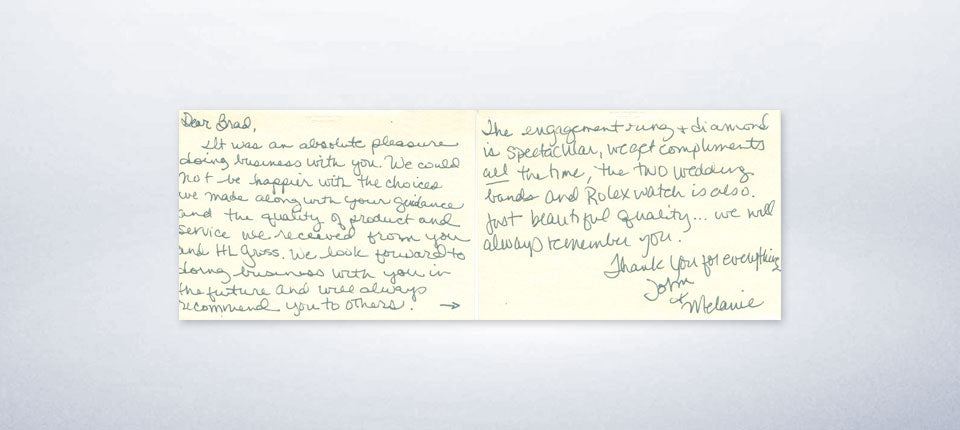 Dear Brad,
It was an absolute pleasure
doing business with you. We could
not be happier with the choices
we made along with your guidance
and the quality of product and
service we received from you
and HL Gross. We look forward to
doing business with you in
the future and will always
recommend you to others. →
The engagement ring + diamond
is spectacular, we get compliments
all the time, the two wedding
bands and Rolex watch is also.
Just beautiful quality... we will
always remember you.
Thank you for everything
John
+ Melanie